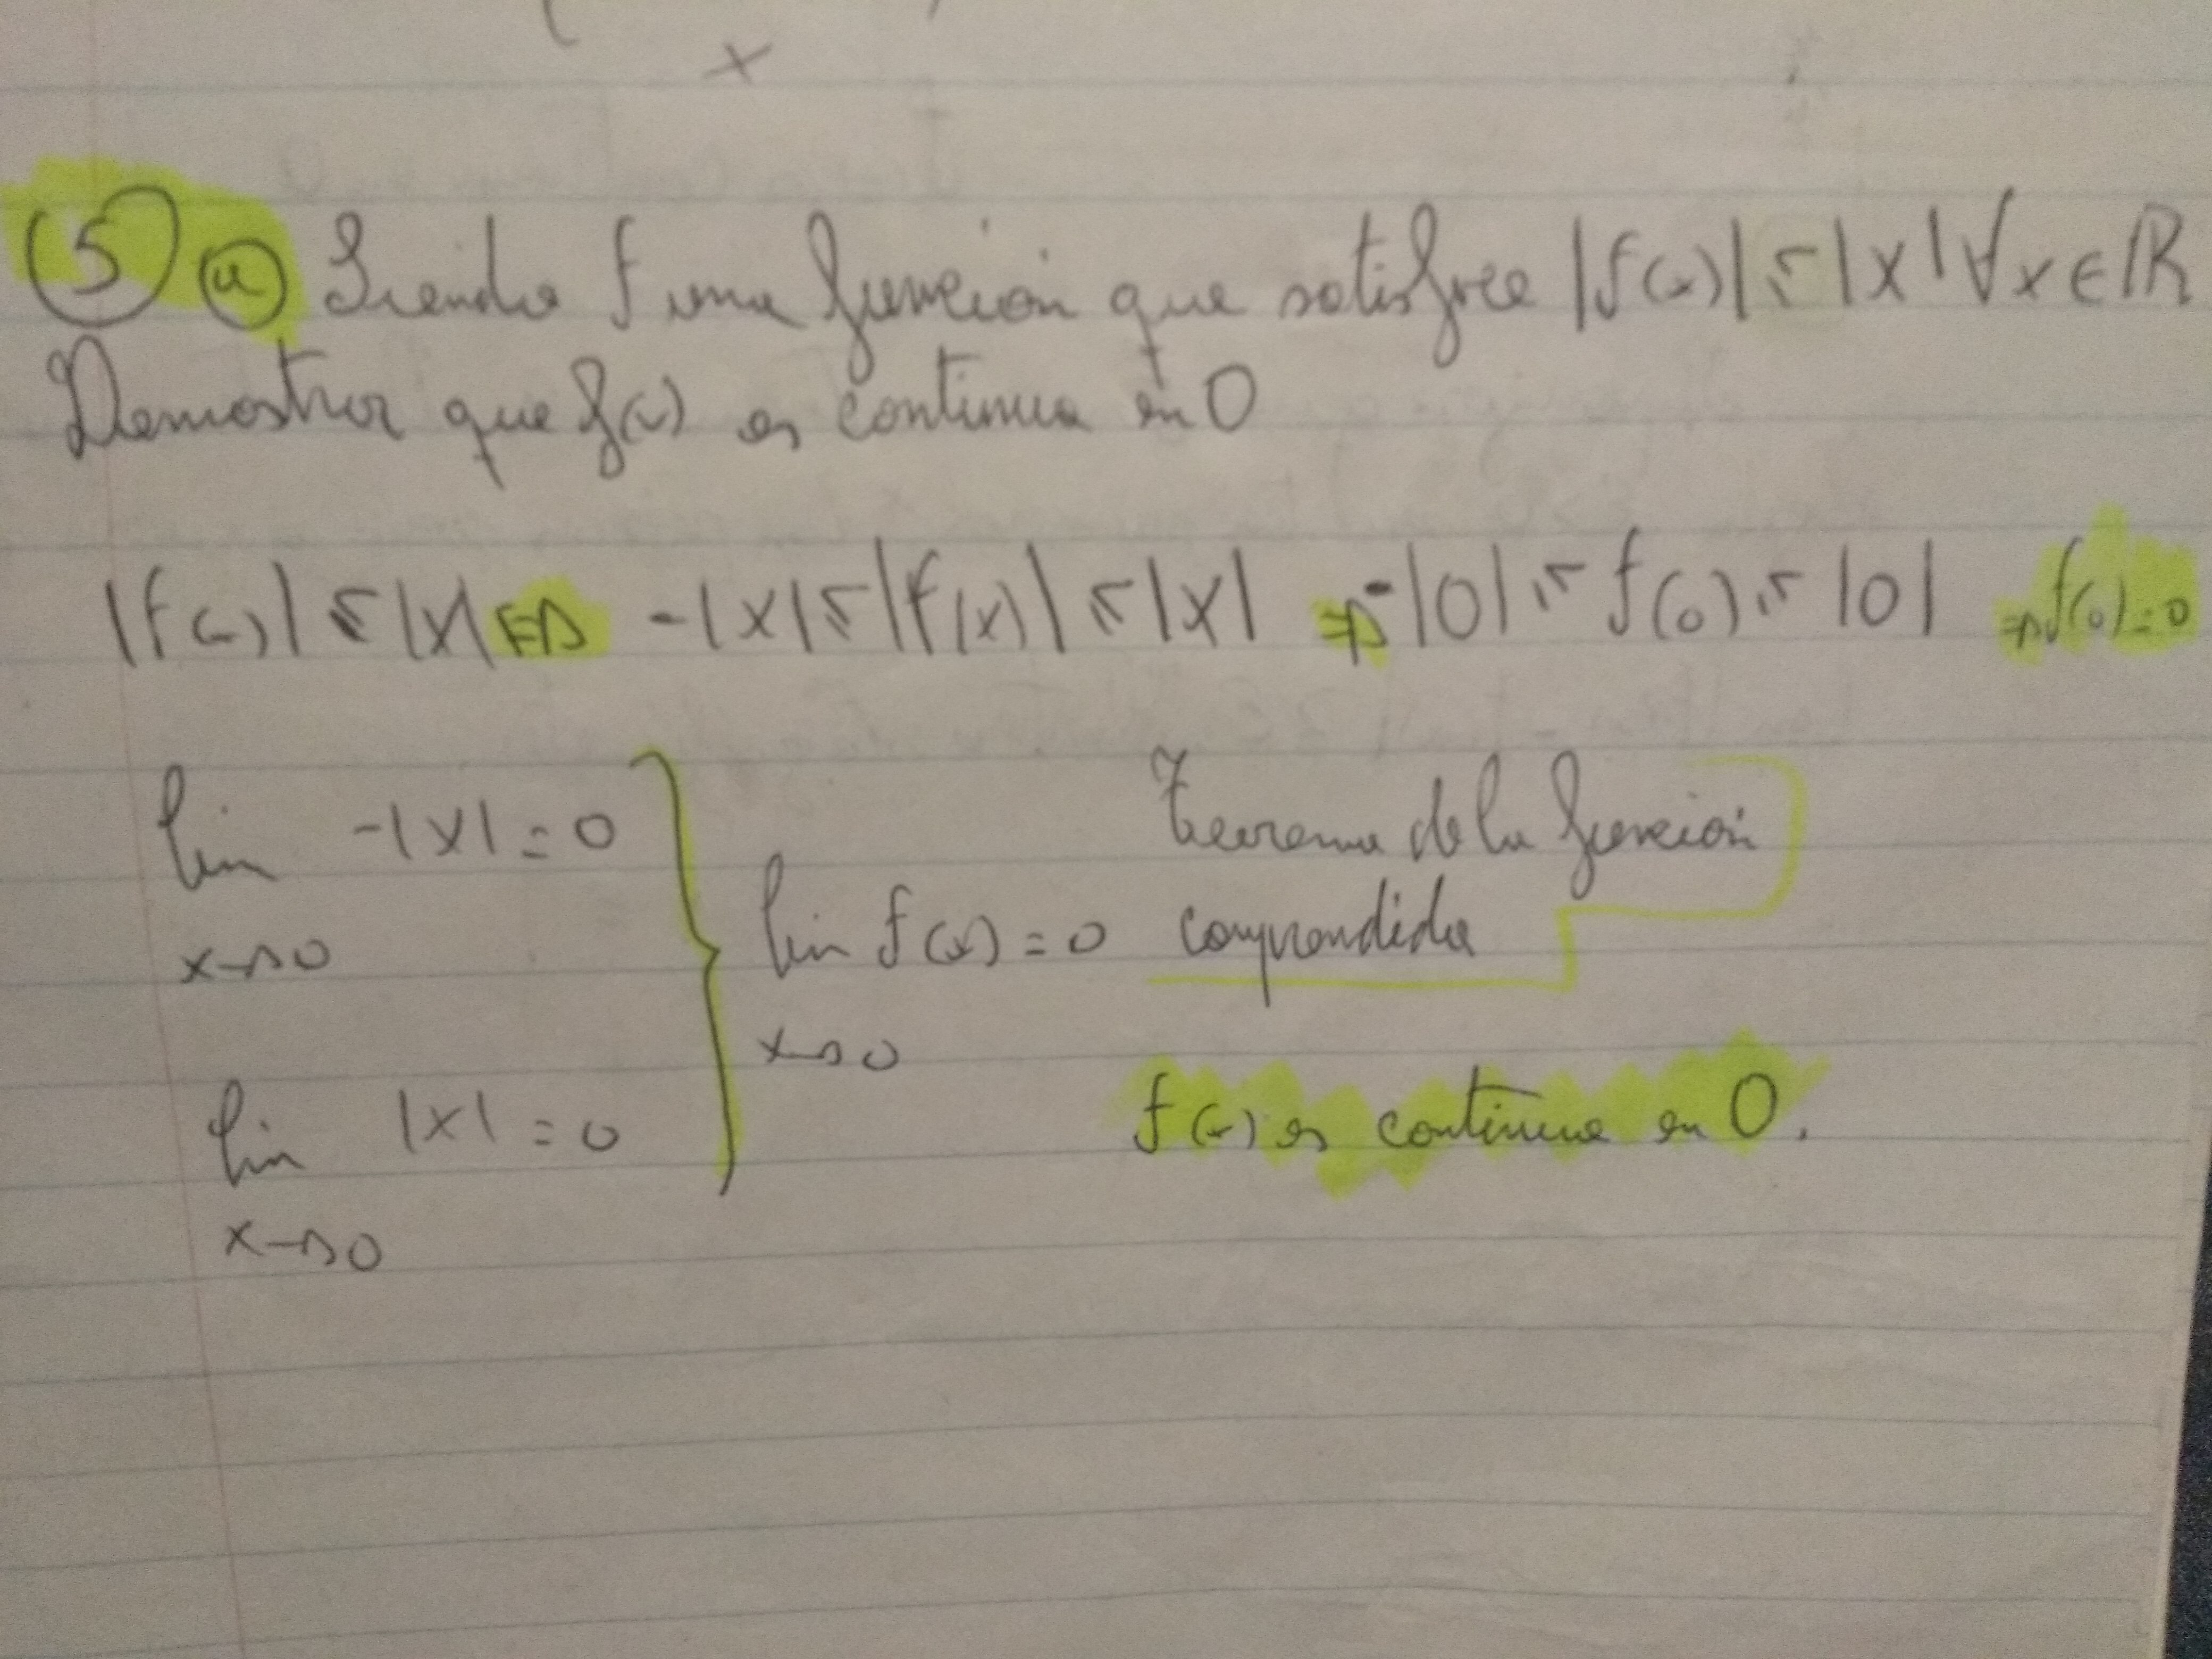 x
5 a Siendo f una función que satisface |f(x)| ≤ |x| ∀x ∈ ℝ
Demostrar que f(x) es continua en 0
|f(x)| ≤ |x| ⇔ -|x| ≤ |f(x)| ≤ |x| ⇒ -|0| ≤ f(0) ≤ |0| ⇒ f(0) = 0
lim -|x| = 0
x→0
lim |x| = 0
x→0
lim f(x) = 0
x→0
Teorema de la función
comprendida
f(x) es continua en 0.